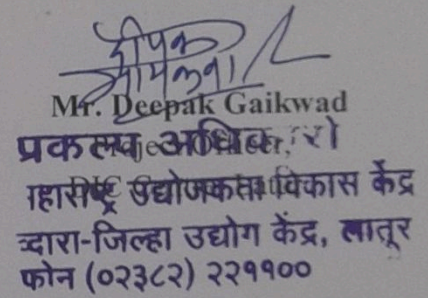 दीपक
गायकवाड
Mr. Deepak Gaikwad
प्रकल्प अधिकारी
महाराष्ट्र उद्योजकता विकास केंद्र
द्वारा-जिल्हा उद्योग केंद्र, लातूर
फोन (०२३८२) २२११००